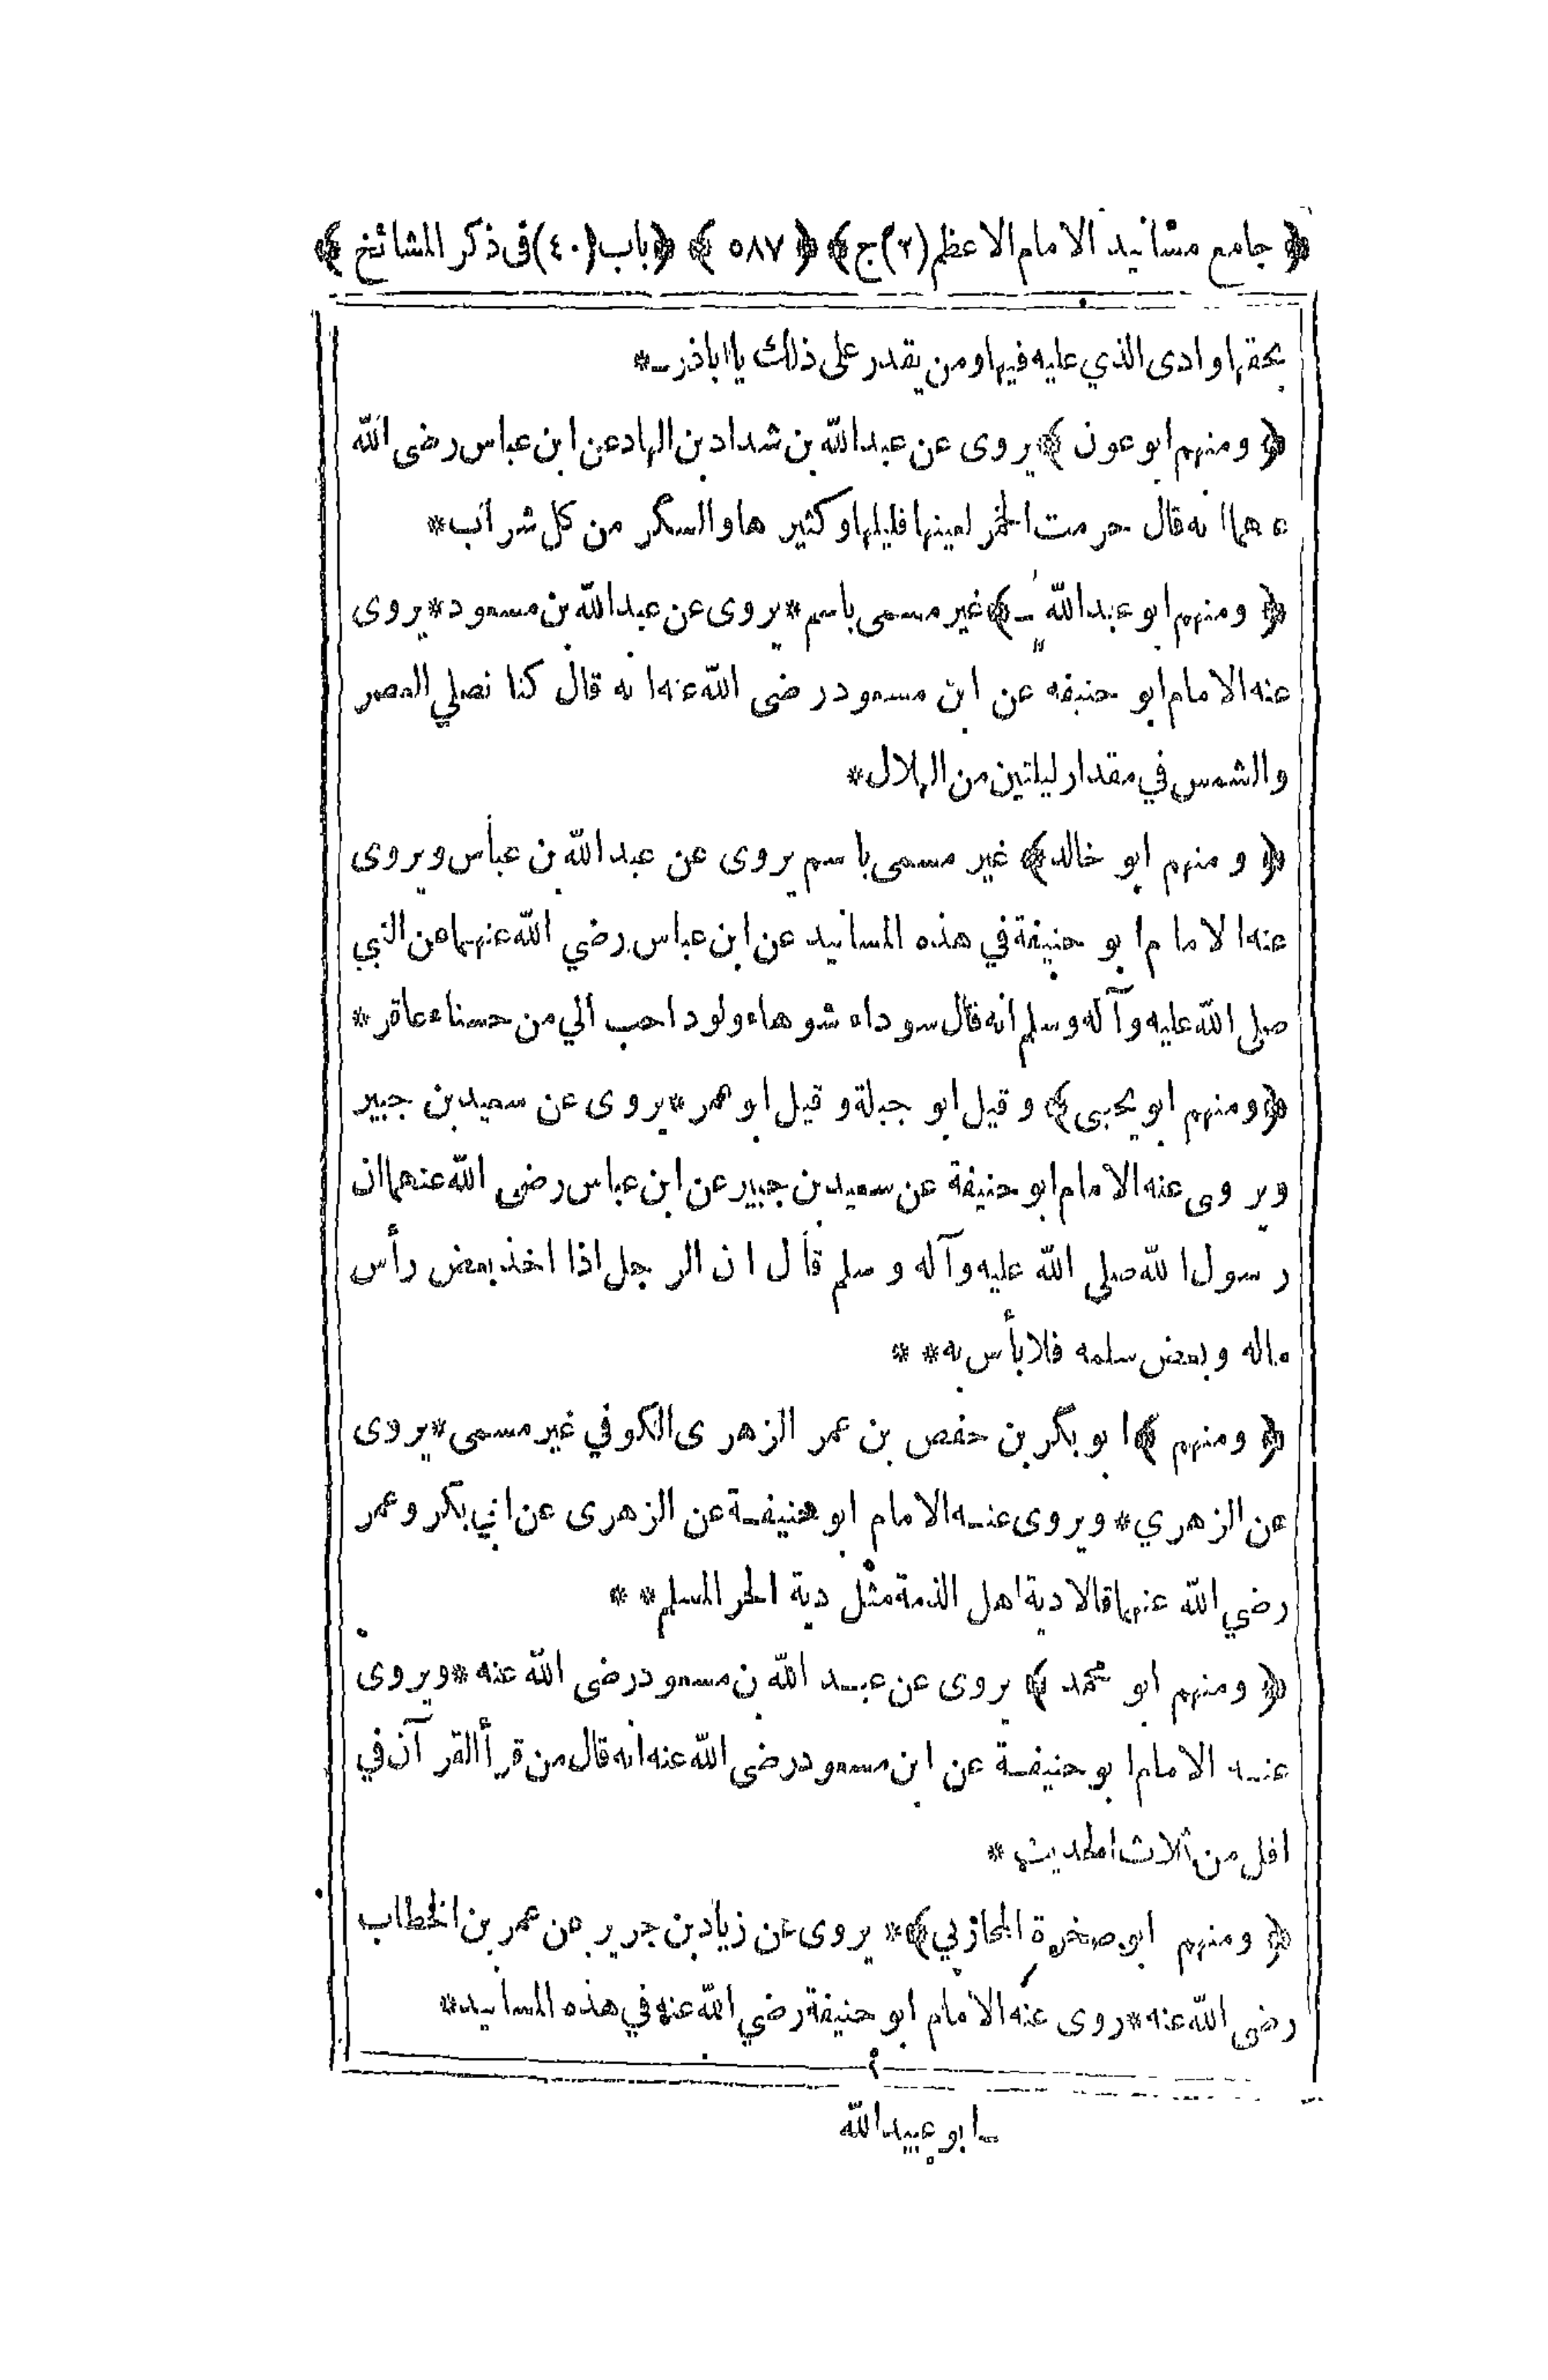 ﴿ جامع مسانيد الامام الاعظم (٢) ج ﴾ ﴿ ٥٨٧ ﴾ ﴿ باب (٤٠) فى ذكر المشائخ ﴾
بحقها وادى الذي عليه فيها ومن يقدر على ذلك يا اباذر ـ*
﴿ ومنهم ابو عون ﴾ يروى عن عبد الله بن شداد بن الهاد عن ابن عباس رضى الله
عنهما انه قال حرمت الخمر لعينها قليلها وكثير ها والسكر من كل شراب *
﴿ ومنهم ابو عبد الله ـ ﴾ غير مسمى باسم * يروى عن عبد الله بن مسعود * يروى
عنه الامام ابو حنيفه عن ابن مسعود رضى الله عنه انه قال كنا نصلي العصر
والشمس في مقدار ليلتين من الهلال *
﴿ ومنهم ابو خالد ﴾ غير مسمى باسم يروى عن عبد الله بن عباس ويروى
عنه الامام ابو حنيفة في هذه المسانيد عن ابن عباس رضي الله عنهما عن النبي
صلى الله عليه وآله وسلم انه قال سوداء شوهاء ولود احب الي من حسناء عاقر *
﴿ ومنهم ابو يحيى ﴾ وقيل ابو جبلة وقيل ابو عمر * يروى عن سعيد بن جبير
ويروى عنه الامام ابو حنيفة عن سعيد بن جبير عن ابن عباس رضى الله عنهما ان
رسول الله صلى الله عليه وآله وسلم قال ان الرجل اذا اخذ بعض رأس
ماله وبعض سلمه فلا بأس به * *
﴿ ومنهم ﴾ ابو بكر بن حفص بن عمر الزهرى الكوفي غير مسمى * يروى
عن الزهري * ويروى عنه الامام ابو حنيفة عن الزهرى عن ابي بكر وعمر
رضي الله عنهما قالا دية اهل الذمة مثل دية الحر المسلم * *
﴿ ومنهم ابو محمد ﴾ يروى عن عبد الله بن مسعود رضى الله عنه * ويروى
عنه الامام ابو حنيفة عن ابن مسعود رضى الله عنه انه قال من قرأ القرآن في
اقل من ثلاث الحديث *
﴿ ومنهم ابو صخرة المحاربي ﴾ * يروى عن زياد بن جرير عن عمر بن الخطاب
رضى الله عنه * روى عنه الامام ابو حنيفة رضي الله عنه في هذه المسانيد *
ـ ابو عبيد الله